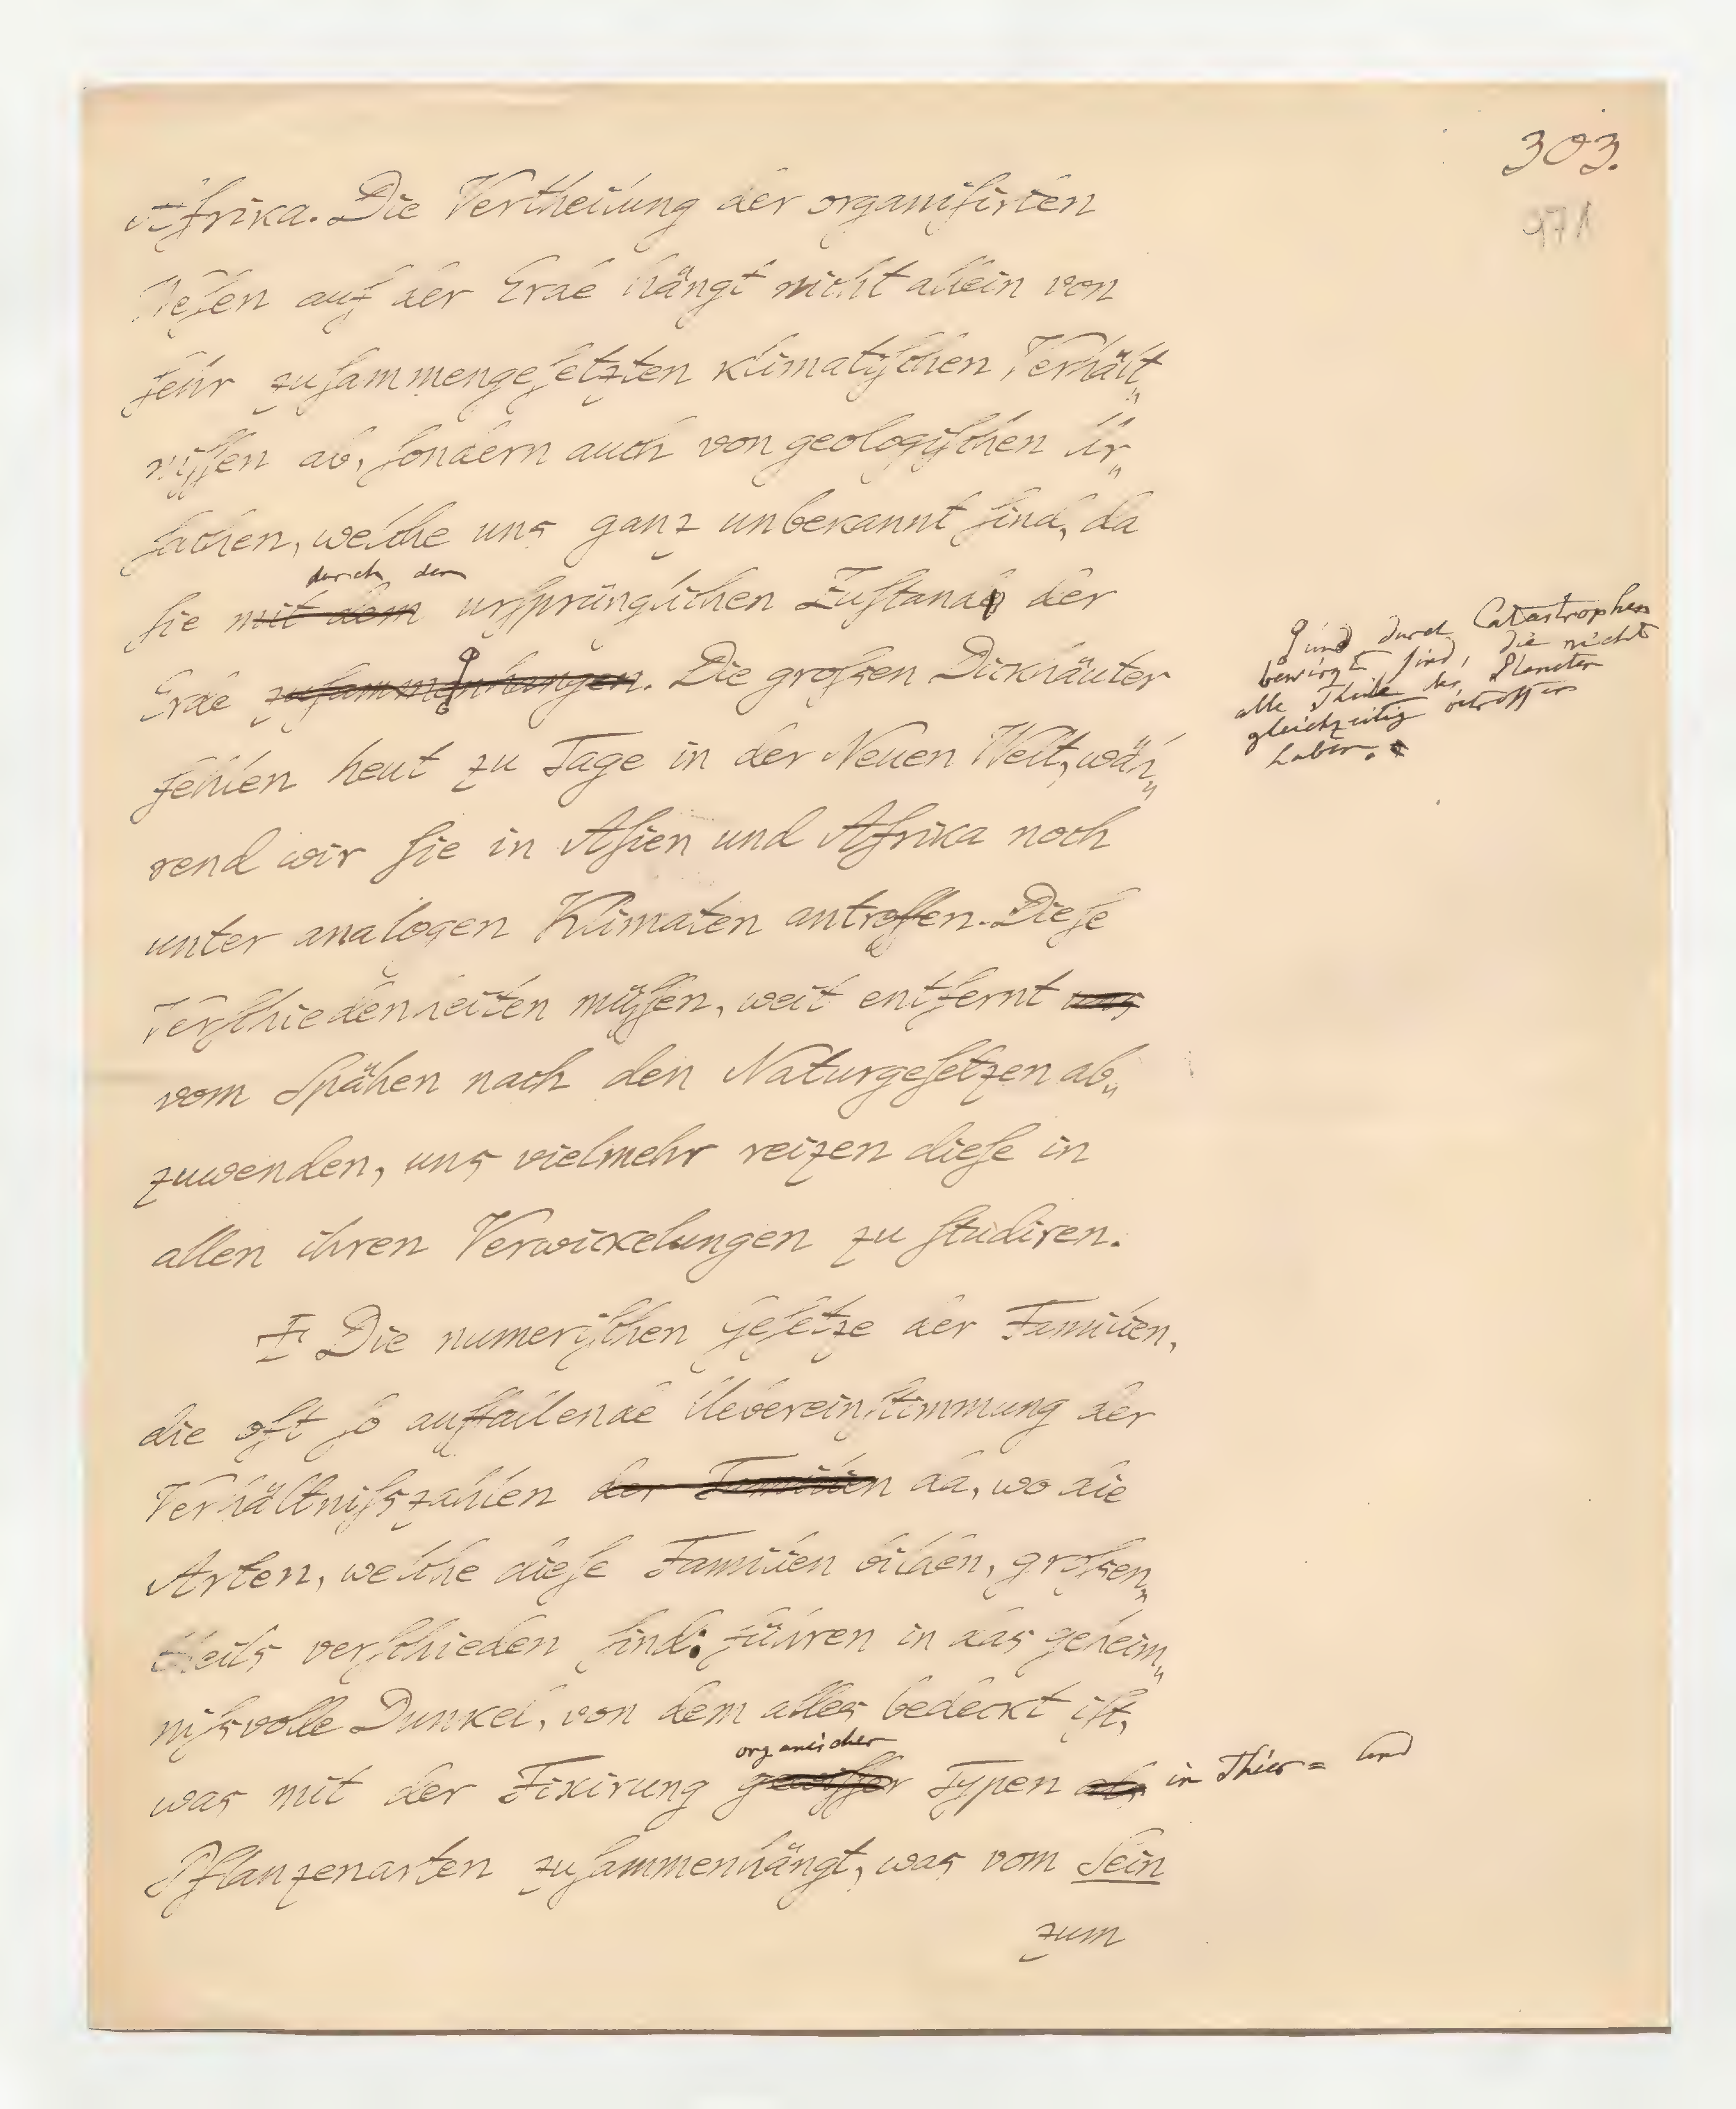 303.
971
Afrika. Die Vertheilung der organisirten
Wesen auf der Erde hängt nicht allein von
sehr zusammengesetzten klimatischen Verhält„
nissen ab, sondern auch von geologischen Ur„
sachen, welche uns ganz unbekannt sind, da
durch den
sie mit dem ursprünglichen Zustand der
Erde zusammenhangen. Die großen Dickhäuter
und durch Catastrophen
bewirgt sind, die nicht
alle Theile des Planeten
gleichzeitig betroffen
haben.
fehlen heut zu Tage in der Neuen Welt, wäh„
rend wir sie in Asien und Afrika noch
unter analogen Klimaten antreffen. Diese
Verschiedenheiten müssen, weit entfernt uns
vom Spähen nach den Naturgesetzen ab„
zuwenden, uns vielmehr reizen diese in
allen ihren Verwickelungen zu studiren.
Die numerischen Gesetze der Familien,
die oft so auffallende Uebereinstimmung der
Verhältnißzahlen der Familien da, wo die
Arten, welche diese Familien bilden, großen„
theils verschieden sind: führen in das geheim„
nißvolle Dunkel, von dem alles bedeckt ist,
organischer
was mit der Fixirung gewisser Typen als in Thier= und
Pflanzenarten zusammenhängt, was vom Sein
zum